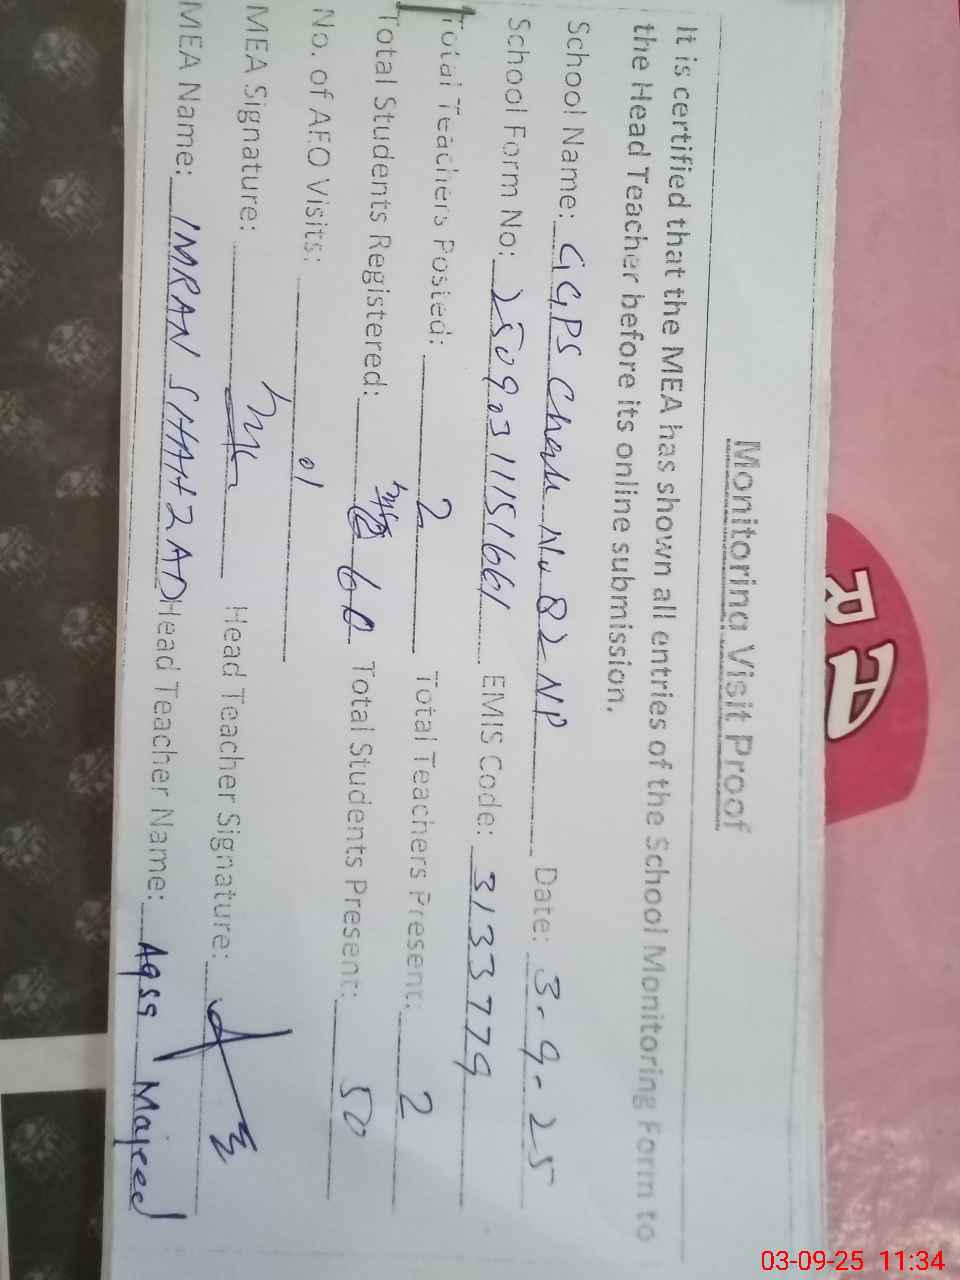 Monitoring Visit Proof
It is certified that the MEA has shown all entries of the School Monitoring Form to
the Head Teacher before its online submission.
School Name: GGPS Chak No 82 NP Date: 3-9-25
School Form No: 25090311151661 EMIS Code: 3133779
Total Teachers Posted: 2 Total Teachers Present: 2
Total Students Registered: 60 Total Students Present: 50
No. of AEO Visits: 01
MEA Signature: Head Teacher Signature:
MEA Name: IMRAN SHAHZAD Head Teacher Name: Aqsa Majeed
03-09-25 11:34